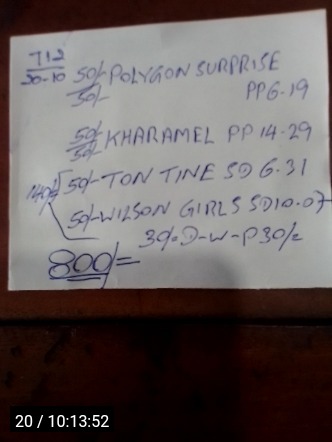 712
30-10
50/- POLYGON SURPRISE
50/-
PP 6.19
50/- KHARAMEL PP 14.29
50/-
140/- 50/- TON TINE SD 6.31
50/- WILSON GIRLS SD 10.07
30/- D-W-P 30/-
800/=
20 / 10:13:52